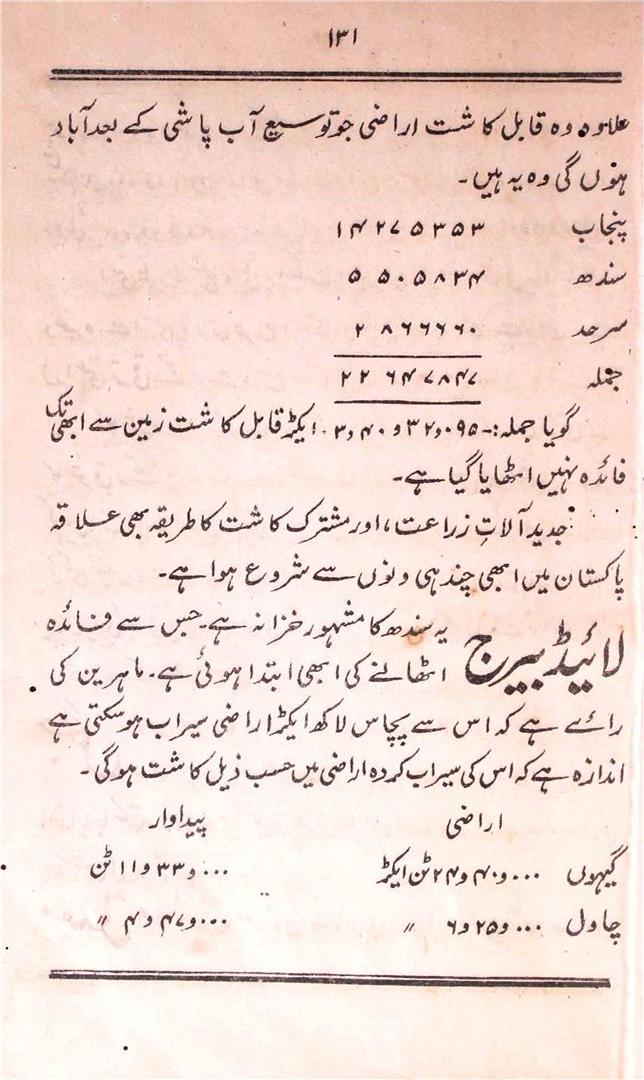 ۱۳۱
علاوہ وہ قابل کاشت اراضی جو توسیع آب پاشی کے بعد آباد
ہوں گی وہ یہ ہیں۔
پنجاب ۱۴۲۷۵۳۵۳
سندھ ۵۵۰۵۸۳۴
سرحد ۲۸۶۶۶۶۰
جملہ ۲۲۶۴۷۸۴۷
گویا جملہ:۔ ۳,۴۰,۳۲,۰۹۵ ایکڑ قابل کاشت زمین سے ابھی تک
فائدہ نہیں اٹھایا گیا ہے۔
جدید آلاتِ زراعت، اور مشترک کاشت کا طریقہ بھی علاقہ
پاکستان میں ابھی چند ہی دنوں سے شروع ہوا ہے۔
لائیڈ بیرج یہ سندھ کا مشہور خزانہ ہے۔ جس سے فائدہ
اٹھانے کی ابھی ابتدا ہوئی ہے۔ ماہرین کی
رائے ہے کہ اس سے پچاس لاکھ ایکڑ اراضی سیراب ہوسکتی ہے
اندازہ ہے کہ اس کی سیراب کردہ اراضی میں حسب ذیل کاشت ہوگی۔
اراضی پیداوار
گیہوں ۲۴و۴۰و۰۰۰ ٹن ایکڑ ۱۱و۳۳و۰۰۰ ٹن
چاول ۶و۲۵و۰۰۰ " ۴و۴۷و۰۰۰ "